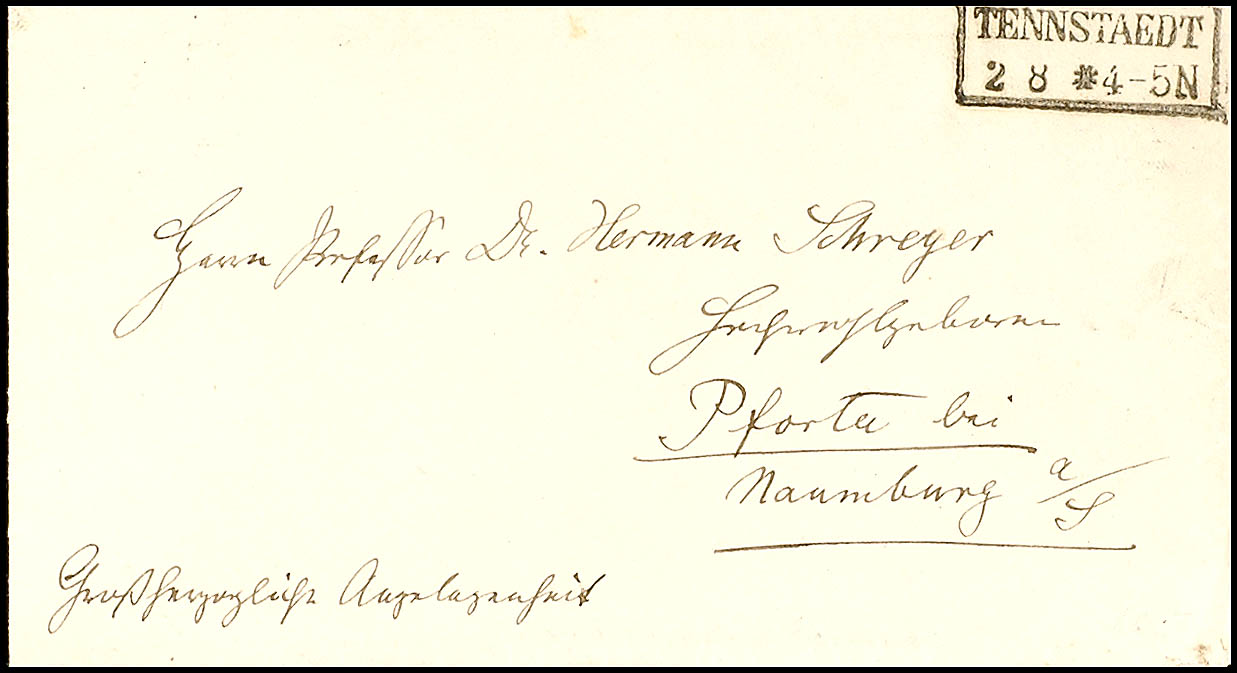 TENNSTAEDT
2 8 *4-5N
Herrn Professor Dr. Hermann Schreyer
Hochwohlgeboren
Pforta bei
Naumburg a/S
Großherzogliche Angelegenheit